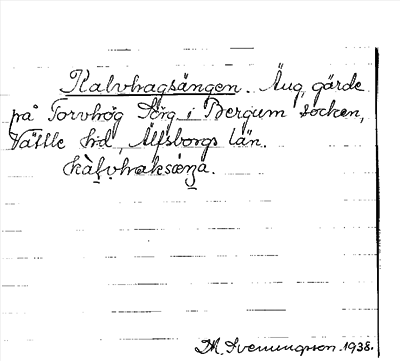 Kalvhagsängen. Äng, gärde
på Torvhög Sörg i Bergum socken,
Vättle hd, Älfsborgs län.
kàlvhaksæŋa.
M. Svenungsson 1938.